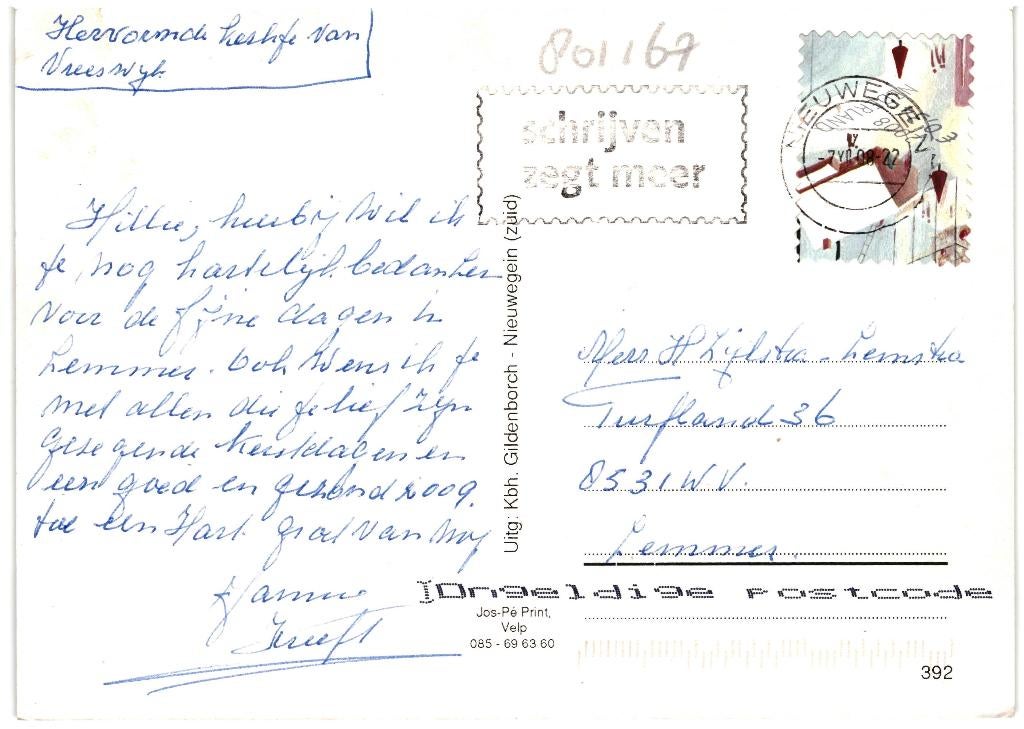 Hervormde kerkje van
Vreeswijk
801167
schrijven
zegt meer
NIEUWEGEIN
Hillie, hierbij wil ik
je, nog hartelijk bedanken
voor de fijne dagen in
Lemmer. Ook wens ik je
met allen die je lief zijn
gezegende kerstdagen en
een goed en gezond 2009.
toe een Hart. groet van mij
Uitg: Kbh. Gildenborch - Nieuwegein (zuid)
Mevr H Zijlstra - Lemstra
Turfland 36
8531 WV.
Lemmer.
Ongeldige postcode
Jos-Pé Print,
Velp
085 - 69 63 60
392